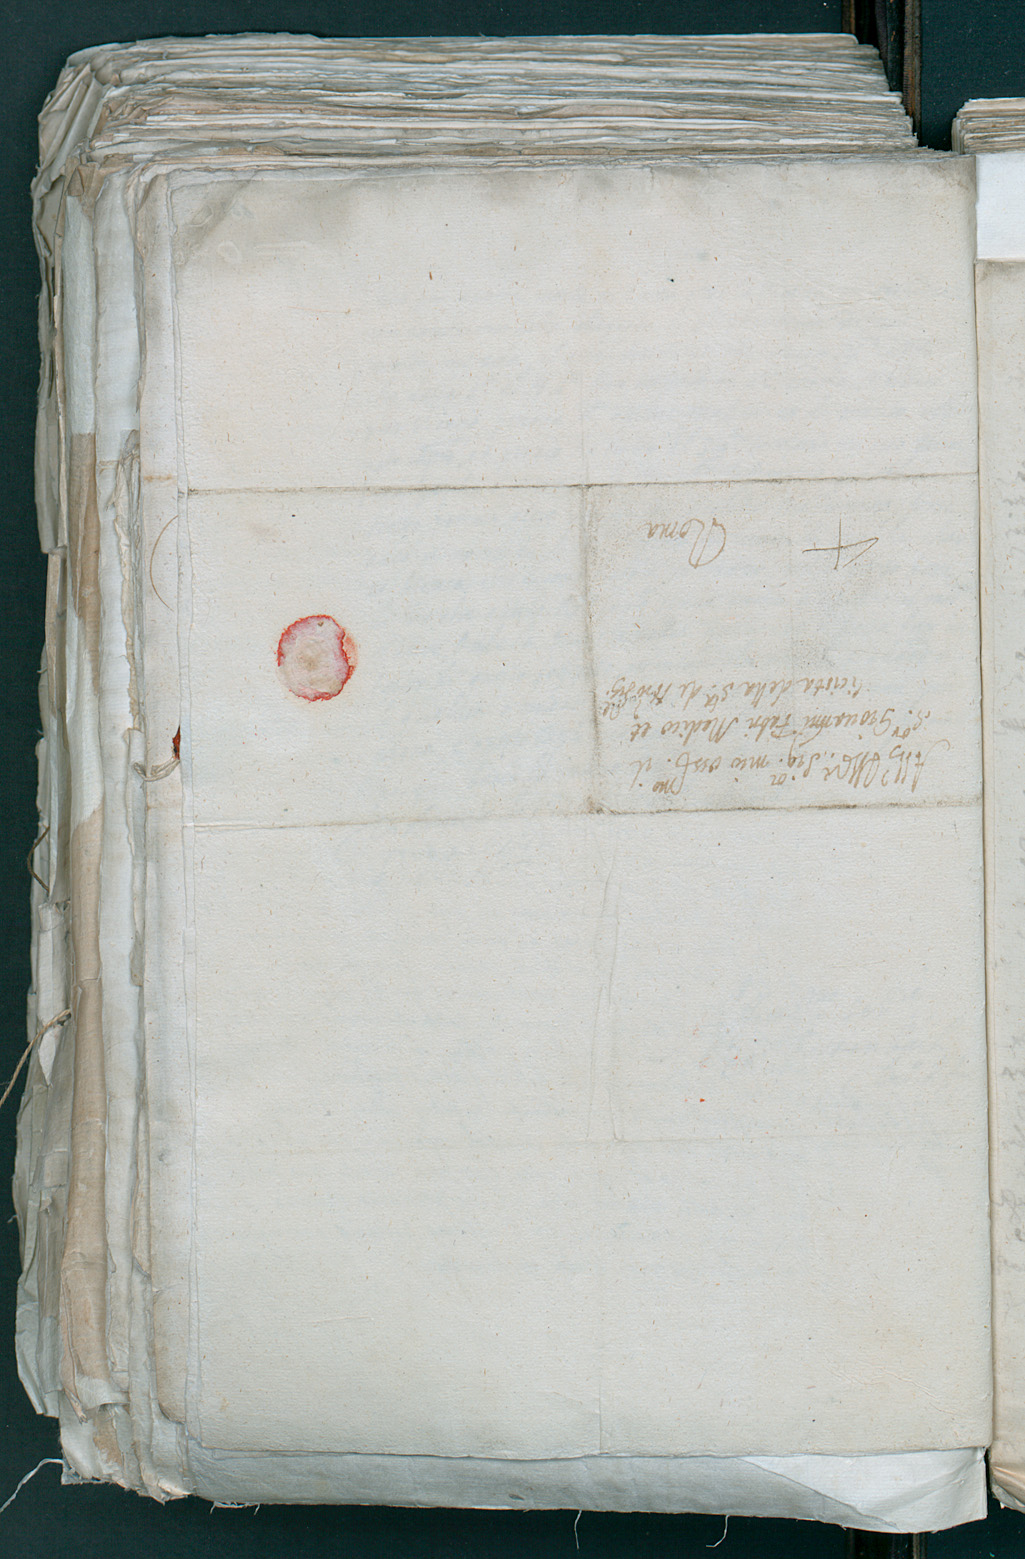 All Ill.re Sig.or mio oss.mo il
S.or Giovanni Fabri Medico et
lista della S.tà de N.ro Sig.re
Roma